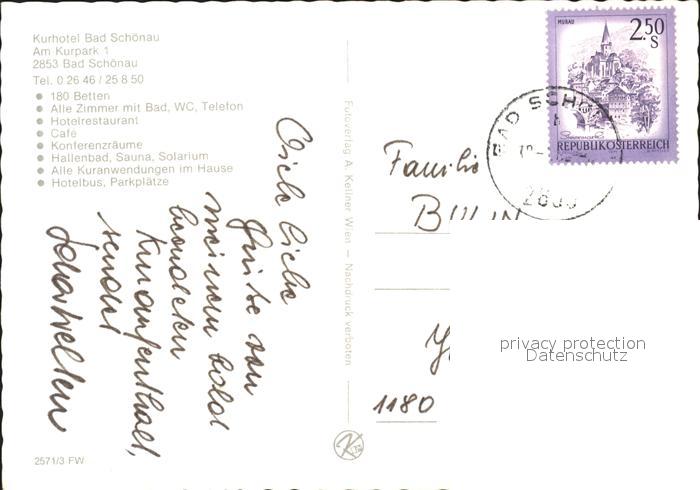 Kurhotel Bad Schönau
Am Kurpark 1
2853 Bad Schönau
Tel. 0 26 46 / 25 8 50
● 180 Betten
● Alle Zimmer mit Bad, WC, Telefon
● Hotelrestaurant
● Café
● Konferenzräume
● Hallenbad, Sauna, Solarium
● Alle Kuranwendungen im Hause
● Hotelbus, Parkplätze
Viele liebe
Grüße von
meinem bald
beendeten
Kuraufenthalt,
sendet
2571/3 FW
Fotoverlag A. Kellner Wien — Nachdruck verboten
MURAU
2.50
S
REPUBLIK ÖSTERREICH
BAD SCHÖ
Familie
1180
privacy protection
Datenschutz